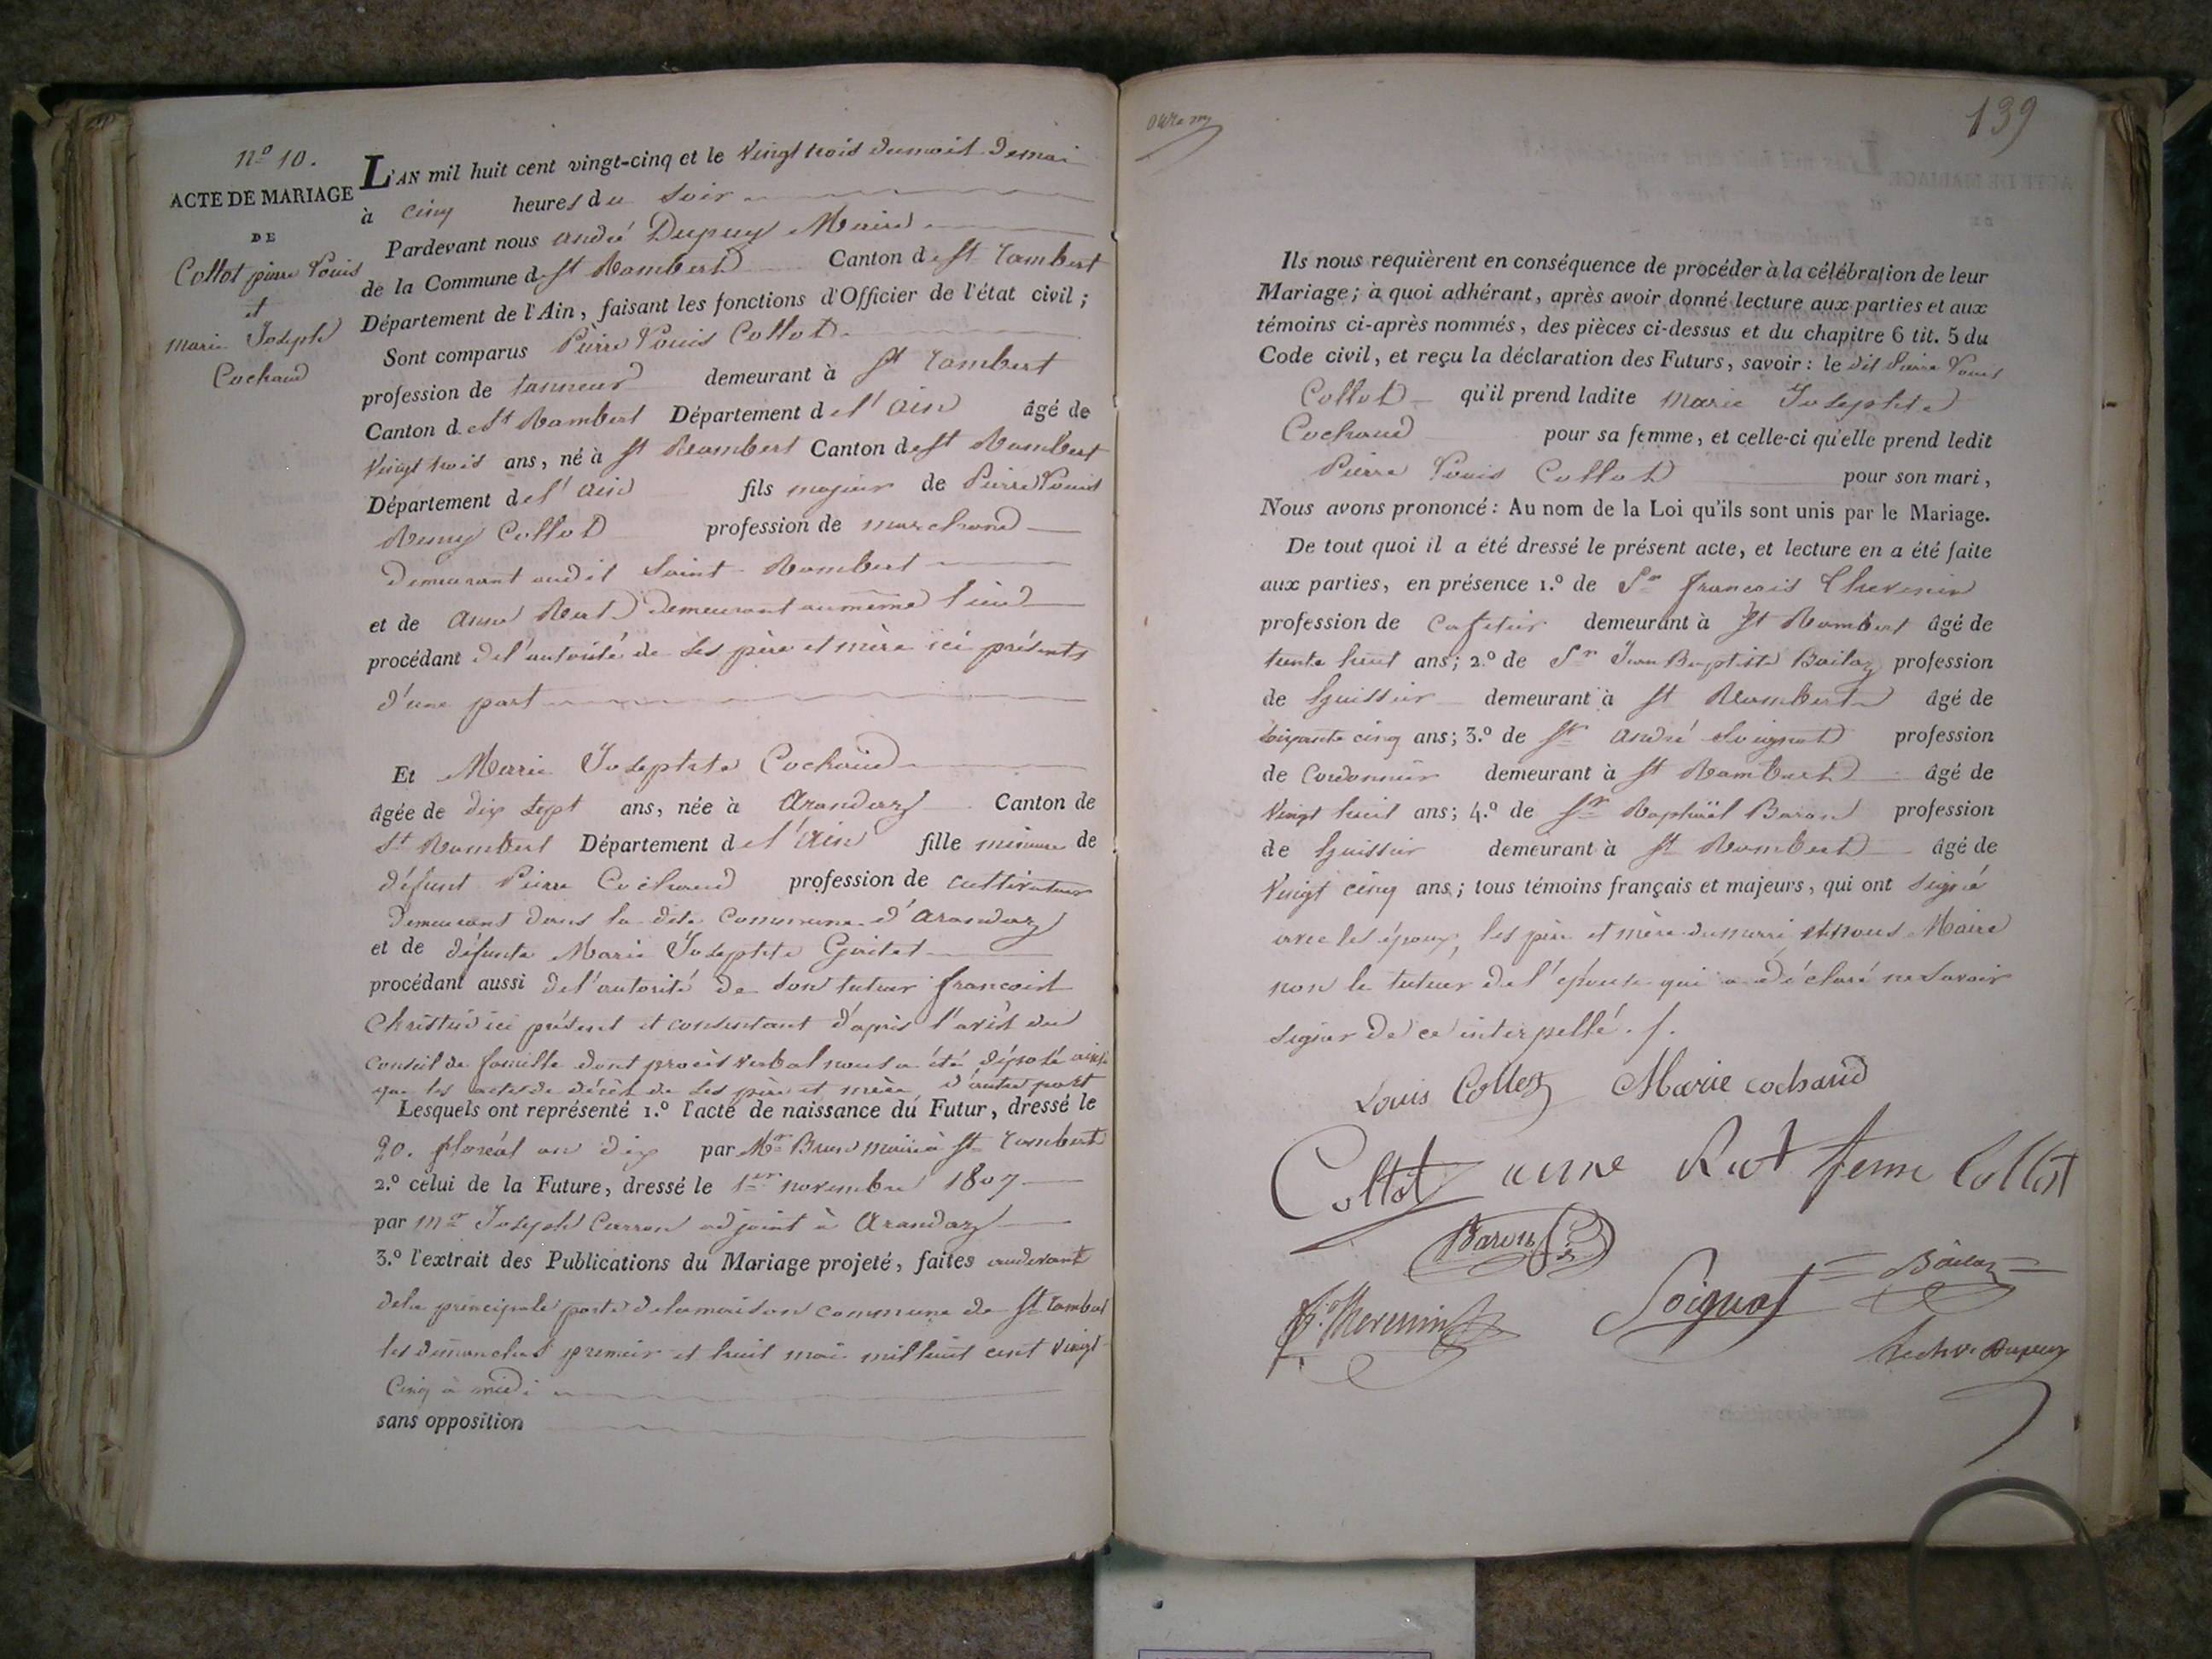 n.º 10.
ACTE DE MARIAGE
DE
Collot pierre Louis
et
marie Joseph
Cochaud
L'AN mil huit cent vingt-cinq et le Vingt trois du mois de mai
à cinq heures du soir
Pardevant nous andré Dupuy Maire
de la Commune de St Rambert Canton de St rambert
Département de l'Ain, faisant les fonctions d'Officier de l'état civil ;
Sont comparus Pierre Louis Collot
profession de tanneur demeurant à St rambert
Canton de St Rambert Département de l'ain âgé de
Vingt trois ans, né à St Rambert Canton de St Rambert
Département de l'ain fils majeur de Pierre Louis
Remy Collot profession de marchand
demeurant audit Saint-Rambert
et de anne demeurant au même lieu
procédant de l'autorité de ses père et mère ici présents
d'une part
Et Marie Josephte Cochaud
âgée de dix sept ans, née à arandaz Canton de
St Rambert Département de l'ain fille mineure de
défunt Pierre Cochaud profession de cultivateur
demeurant dans la dite commune d'arandaz
et de défunte Marie Josephte
procédant aussi de l'autorité de son tuteur francois
ici présent et consentant d'après l'avis du
conseil de famille dont procès verbal nous a été déposé ainsi
que les actes de décès de ses père et mère d'autre part
Lesquels ont représenté 1.º l'acte de naissance du Futur, dressé le
20. floréal an dix par Mr Brun maire à St rambert
2.º celui de la Future, dressé le 1er novembre 1807
par mr Joseph Carron adjoint à arandaz
3.º l'extrait des Publications du Mariage projeté, faites audevant
de la principale porte de la maison commune de St rambert
les dimanches premier et huit mai mil huit cent Vingt
Cinq à midi
sans opposition
139
Ils nous requièrent en conséquence de procéder à la célébration de leur
Mariage ; à quoi adhérant, après avoir donné lecture aux parties et aux
témoins ci-après nommés, des pièces ci-dessus et du chapitre 6 tit. 5 du
Code civil, et reçu la déclaration des Futurs, savoir : le dit Pierre Louis
Collot qu'il prend ladite marie Josephte
Cochaud pour sa femme, et celle-ci qu'elle prend ledit
Pierre Louis Collot pour son mari,
Nous avons prononcé : Au nom de la Loi qu'ils sont unis par le Mariage.
De tout quoi il a été dressé le présent acte, et lecture en a été faite
aux parties, en présence 1.º de Sr francois Thevenin
profession de cafetier demeurant à St Rambert âgé de
trente huit ans ; 2.º de Sr Jean Baptiste Bailaz profession
de huissier demeurant à St Rambert âgé de
soixante cinq ans ; 3.º de Sr andré Soignat profession
de Cordonnier demeurant à St Rambert âgé de
Vingt huit ans ; 4.º de Sr Raphaël Baron profession
de huissier demeurant à St Rambert âgé de
Vingt cinq ans ; tous témoins français et majeurs, qui ont signé
avec les époux, les père et mère du marié et nous Maire
non le tuteur de l'épouse qui a déclaré ne savoir
signer de ce interpellé. /.
Louis Collot Marie cochaud
Collot anne Rut feme Collot
Baron
Soignat Bailaz
fs. Thevenin
Dupuy